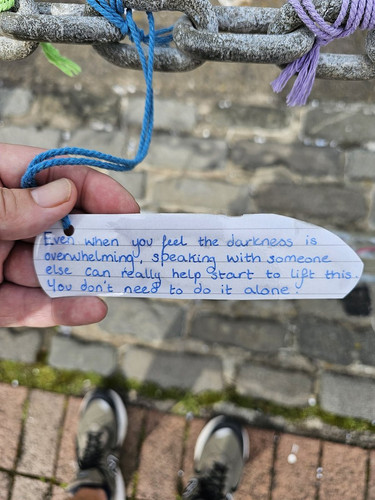 Even when you feel the darkness is
overwhelming, speaking with someone
else can really help start to lift this.
You don't need to do it alone.